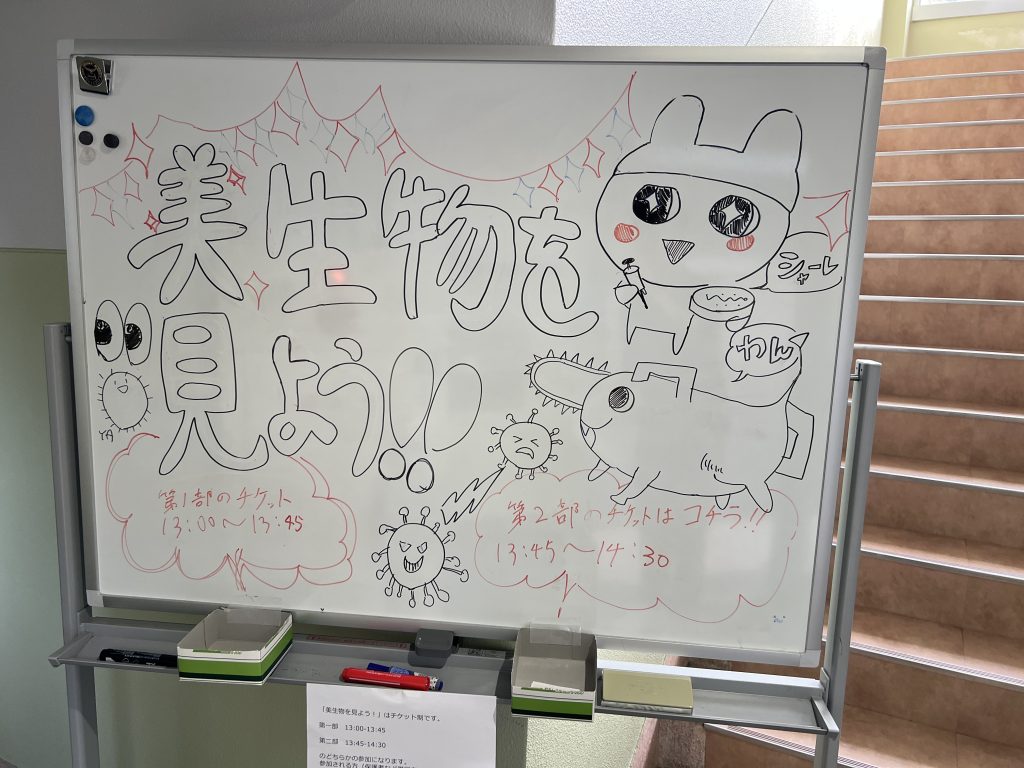 美生物を
見よう!!
シャーレ
わん
第1部のチケット
13:00〜13:45
第2部のチケットはコチラ!!
13:45〜14:30
「美生物を見よう！」はチケット制です。
第一部 13:00-13:45
第二部 13:45-14:30
のどちらかの参加になります。
参加される方（保護者